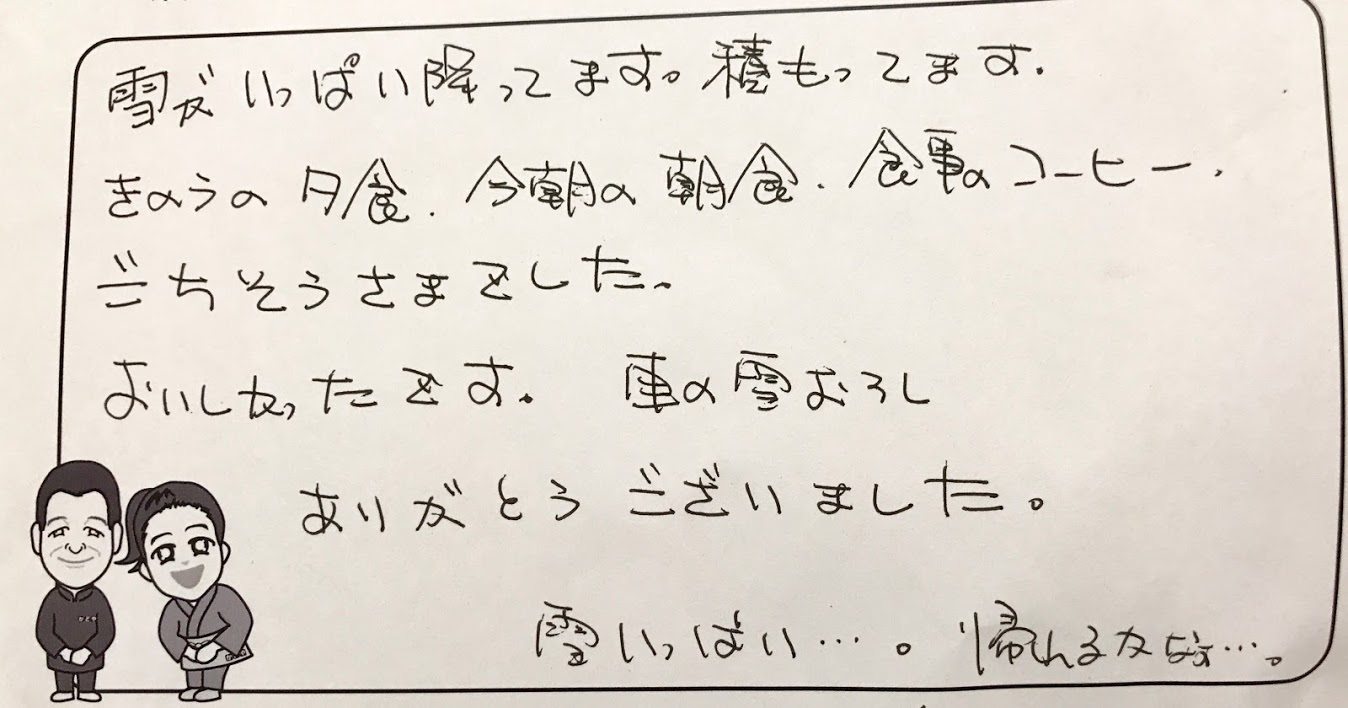 雪がいっぱい降ってます。積もってます.
きのうの夕食.今朝の朝食.食事のコーヒー.
ごちそうさまでした.
おいしかったです.　車の雪おろし
ありがとうございました。
雪いっぱい…。帰れるかなぁ…。